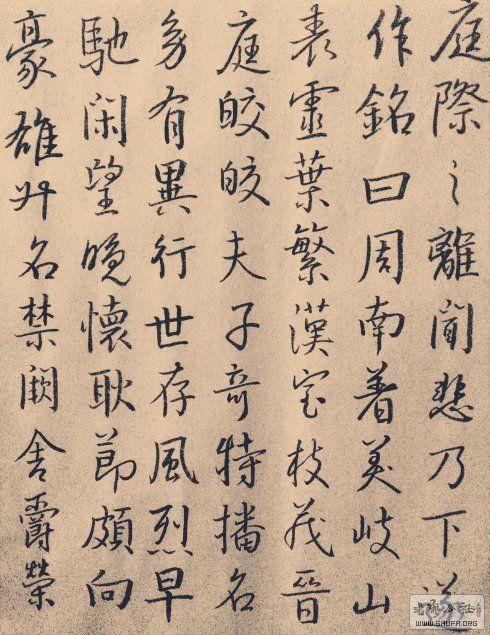 庭際之離聞悲乃下
作銘曰周南着美岐山
表靈葉繁漢室枝茂晉
庭皎皎夫子奇特播名
多有異行世存風烈早
馳閑望晚懷耿節頗向
豪雄升名禁闕舍爵榮
WWW.SHUFA.ORG